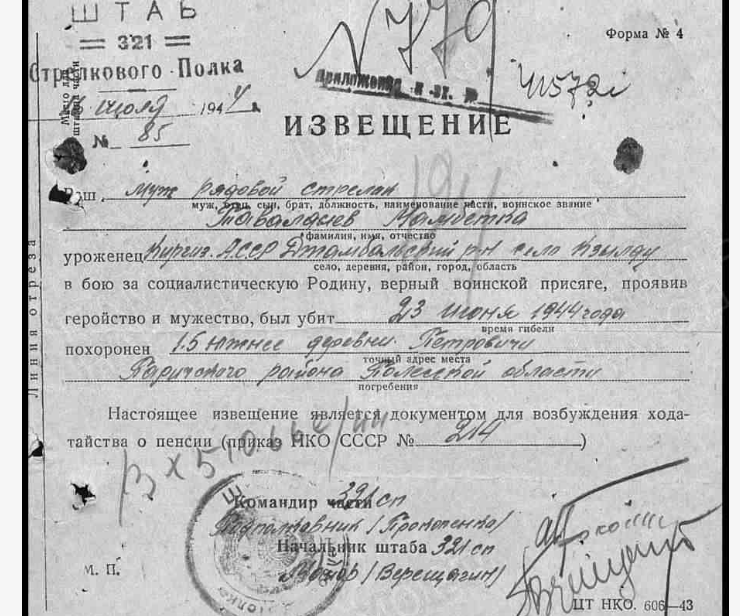 ШТАБ
= 321 =
Стрелкового Полка
Место для штампа части
июля 1944 г.
№ 85
N 779
Форма № 4
ИЗВЕЩЕНИЕ
Ваш муж рядовой стрелок
муж, отец, сын, брат, должность, наименование части, воинское звание
Тавалдиев
фамилия, имя, отчество
уроженец Киргиз. АССР Джамбальский р-н село Кзылду
село, деревня, район, город, область
в бою за социалистическую Родину, верный воинской присяге, проявив
геройство и мужество, был убит 23 июня 1944 года
время гибели
похоронен 1.5 южнее деревни Петровичи
точный адрес места
Паричского района Полесской области
погребения
Настоящее извещение является документом для возбуждения хода-
тайства о пенсии (приказ НКО СССР № 214)
Командир части 321 сп
Подполковник /Прокопенко/
Начальник штаба 321 сп
Майор /Верещагин/
М. П.
ЦТ НКО. 606—43
Линия отреза